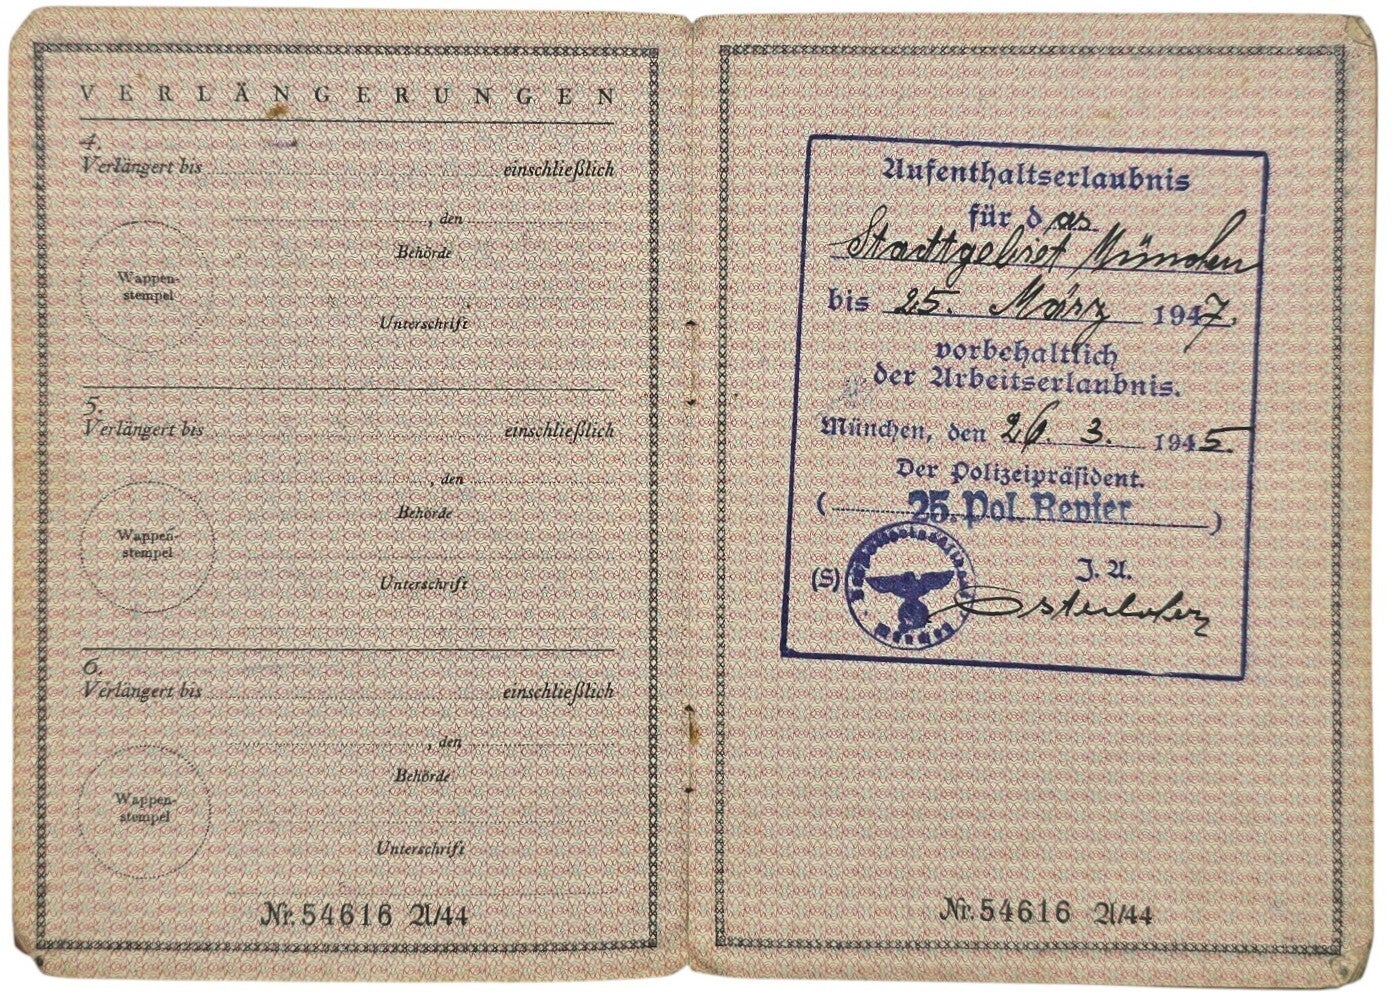 VERLÄNGERUNGEN
4.
Verlängert bis einschließlich
, den
Behörde
Wappen-
stempel
Unterschrift
5.
Verlängert bis einschließlich
, den
Behörde
Wappen-
stempel
Unterschrift
6.
Verlängert bis einschließlich
, den
Behörde
Wappen-
stempel
Unterschrift
Nr. 54616 A/44
Aufenthaltserlaubnis
für das
Stadtgebiet München
bis 25. März 1947.
vorbehaltlich
der Arbeitserlaubnis.
München, den 26. 3. 1945.
Der Polizeipräsident.
(25. Pol. Revier)
(S) J. A.
Nr. 54616 A/44